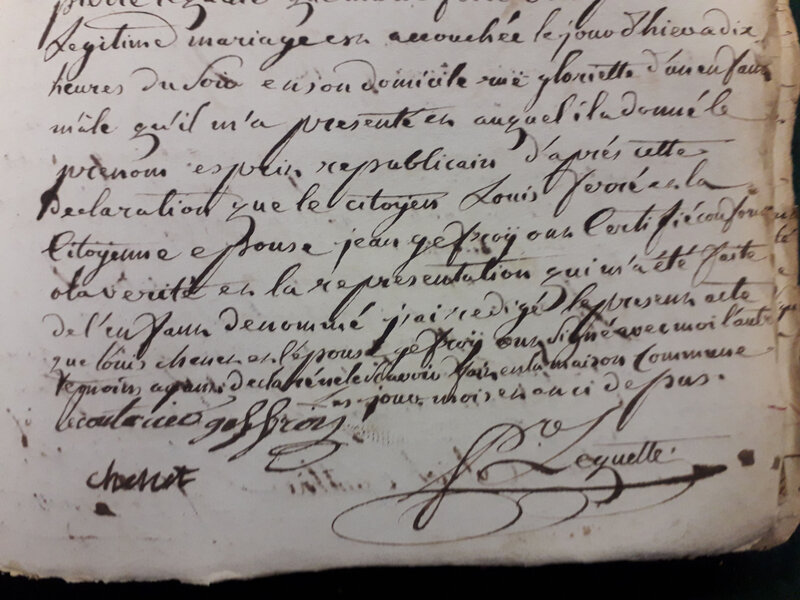 Legitime mariage est accouchée le jour d'hier a dix
heures du Soir en son domicile rue gloriette d'un enfant
mâle qu'il m'a presenté et auquel il a donné le
prenom esprit republicain d'après cette
declaration que le citoyen Louis et la
Citoyenne epouse jean gefroÿ ont Certifié conforme
a la verité et la représentation qui m'a été faite
de l'enfant denommé j'ai redigé le present acte
que l'épouse gefroÿ ont Signé avec moi l'autre
temoins ayant declaré ne le Savoir fait en la maison Commune
jour mois et an ci depus.
geffroy
Lequelle